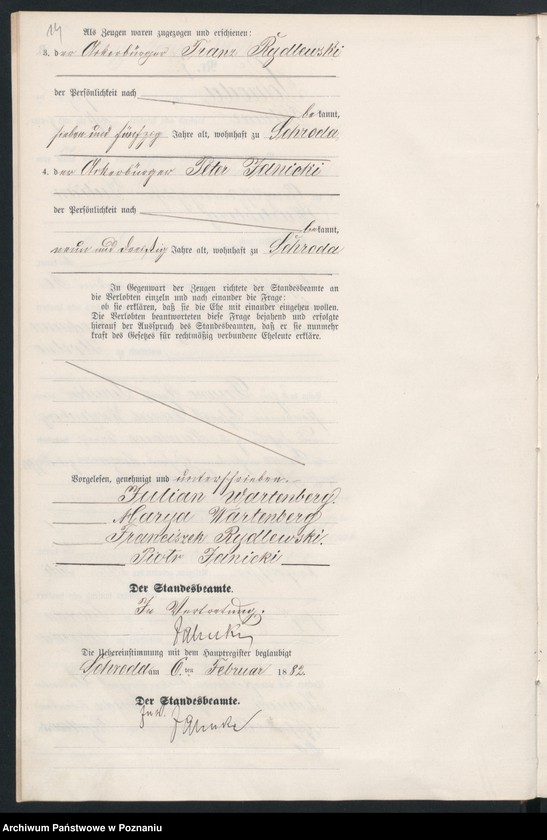 14
Als Zeugen waren zugezogen und erschienen:
3. der Ackerbürger Franz Rydlewski
der Persönlichkeit nach
bekannt,
sieben und fünfzig Jahre alt, wohnhaft zu Schroda
4. der Ackerbürger Peter Janicki
der Persönlichkeit nach
bekannt,
neun und dreißig Jahre alt, wohnhaft zu Schroda
In Gegenwart der Zeugen richtete der Standesbeamte an
die Verlobten einzeln und nach einander die Frage:
ob sie erklären, daß sie die Ehe mit einander eingehen wollen.
Die Verlobten beantworteten diese Frage bejahend und erfolgte
hierauf der Ausspruch des Standesbeamten, daß er sie nunmehr
kraft des Gesetzes für rechtmäßig verbundene Eheleute erkläre.
Vorgelesen, genehmigt und unterschrieben.
Julian Wartenberg.
Marya Wartenberg
Franciszek Rydlewski.
Piotr Janicki
Der Standesbeamte.
In Vertretung.
Die Uebereinstimmung mit dem Hauptregister beglaubigt
Schroda am 6. ten Februar 1882.
Der Standesbeamte.
Archiwum Państwowe w Poznaniu